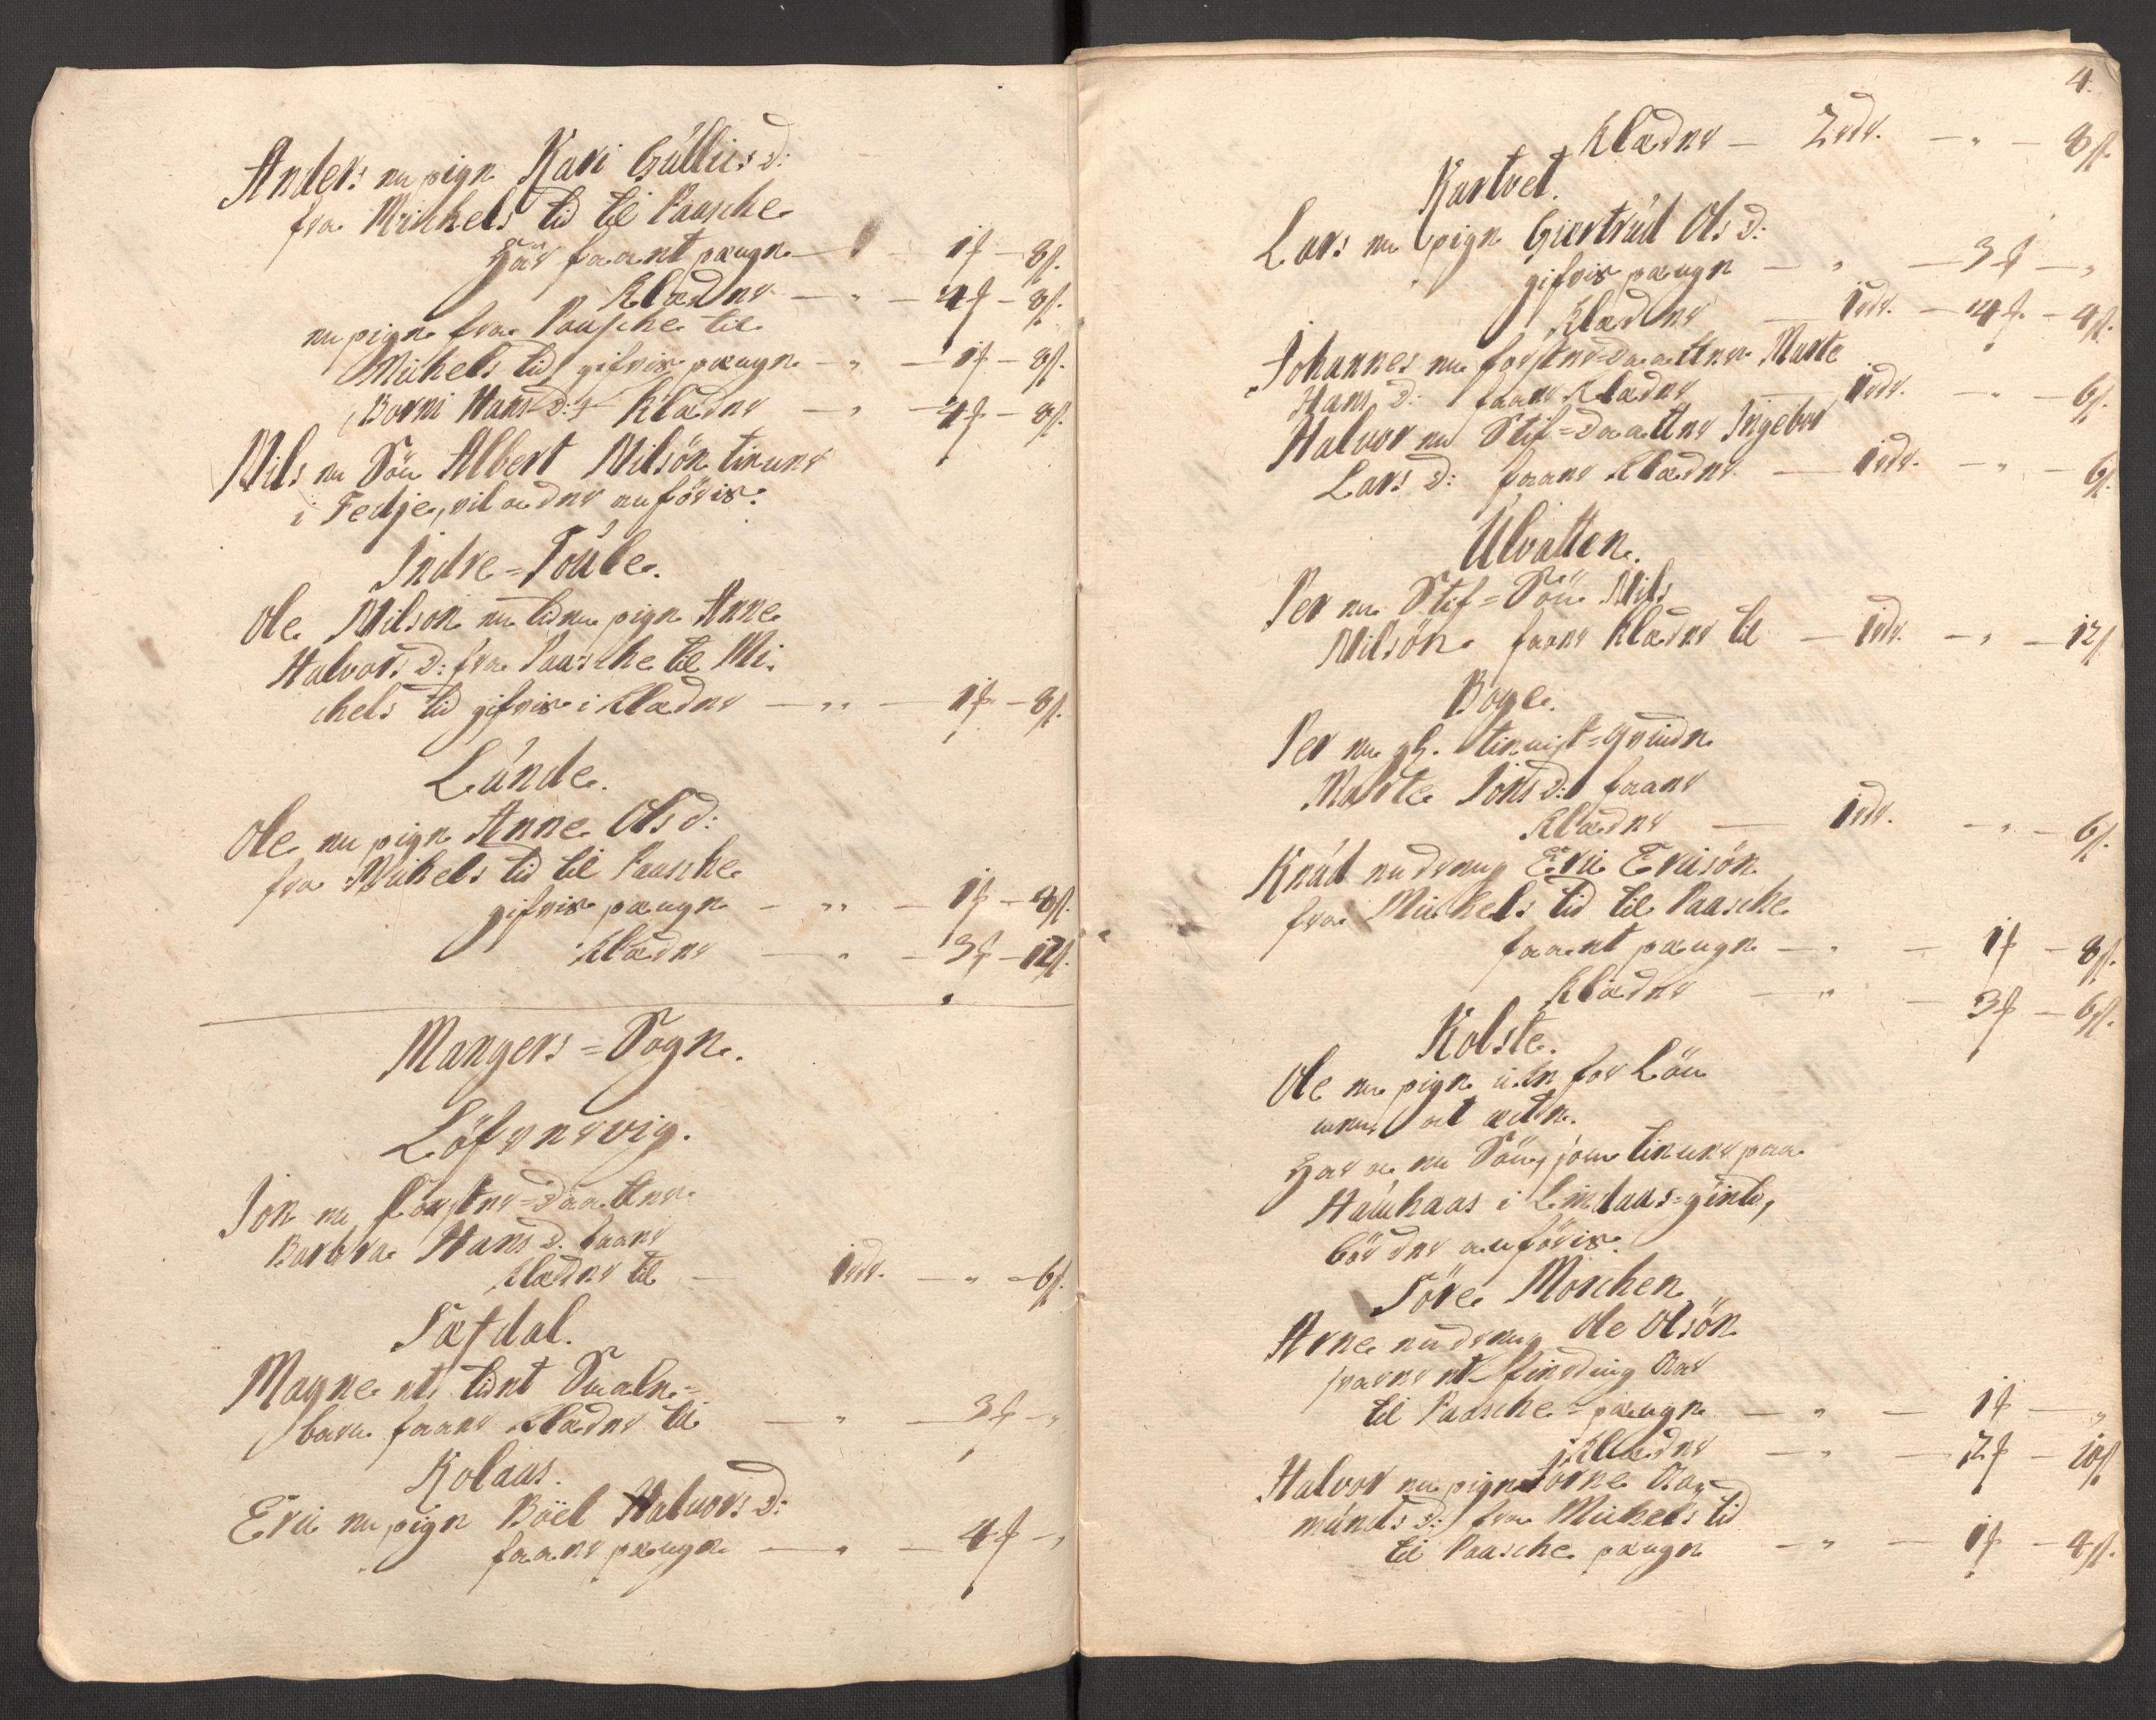 Anders en pige Kari Gulliesd:
fra Michels tid til Paasche
Har faaet penge — 1ʄ — 8ß.
Klæder — „ — 4ʄ — 8ß.
en pige fra Paasche til
Michels tid gifvis penge — „ — 1ʄ — 8ß.
Borni Hans d: Klæder — „ — 4ʄ — 8ß.
Nils en Sön Albert Nilsön tiener
i Fedje, vil der anföris.
Indre-Toule.
Ole Nilson en liden pige Anne
Halvors d: fra Paasche til Mi-
chels tid gifvis i Klæder — „ — 1ʄ — 8ß.
Lunde.
Ole en pige Anne Ols d:
fra Michels tid til Paasche
gifvis penge — „ — 1ʄ — 8ß.
Klæder — „ — 3ʄ — 12ß.
Mangers=Sogn.
Löfververig.
Jon en foster=daatter
Barbra Hans d. faaer
Klæder til — 1rdr. — „ — 6ß.
Sætdal.
Magne et lidet Smale=
barn faaer Klæder til — „ — 3ʄ — „
Kolaas.
Eric en pige Böel Halvors d:
faaer penge — „ — 4ʄ — „
4.
Klæder — 2rdr. — „ — 8ß.
Kartvet.
Lars en pige Giertrud Ols d:
gifvis penge — „ — 3ʄ — „
Klæder — 1rdr. — 4ʄ — 4ß.
Johannes en foster=daatter Marte
Hans d: faaer Klæder — 1rdr. — „ — 6ß.
Halvor en Stif=daatter Ingebor
Lars d: faaer Klæder — 1rdr. — „ — 6ß.
Ulvatten.
Per en Stif=Sön Nils
Nilsön faaer Klæder til — 1rdr. — „ — 12ß
Boge.
Per en gl. tienist=qvinde
Marte Jons d: faaer
Klæder — 1rdr. — „ — 6ß.
Knud en dreng Eric Ericsön
fra Michels tid til Paasche
faaet penge — „ — 1ʄ — 8ß.
Klæder — „ — 3ʄ — 6ß.
Kolste.
Ole en pige uden for Lön
men at æde.
Har en Sön, som tiener paa
Hauhaas i Lindaas=gield,
bör der anföris.
Söre Morchen
Arne en dreng Ole Olsön
et fierding Aar
til Paasche=penge — „ — 1ʄ — „
i Klæder — „ — 2ʄ — 10ß
Halvor en pige Torne Aa=
munds d: fra Michels tid
til Paasche penge — „ — 1ʄ — 4ß.